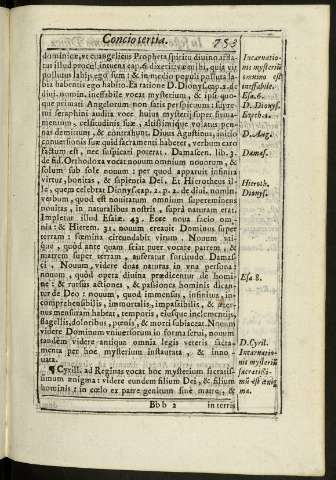 Concio tertia.
753
dominicæ, vt euangelicus Propheta spiritu diuino affla-
tus illud procul intuens cap. 6. dixerit: væ mihi, quia vir
pollutus labijs ego sum: & in medio populi polluta la-
bia habentis ego habito. Ea ratione D. Dionys. cap. 2. de
diui. nomin. ineffabile vocat mysterium, & ipsi quo-
que primati Angelorum non satis perspicuum: supre-
mi seraphini audita voce huius mysterij super firma-
mentum,
mentum, & contrahunt. Diuus Augustinus, initio
conuersionis suæ quid sacramenti haberet, verbum caro
factum est, nec suspicari poterat. Damascen. lib. 3.
de fid. Orthodoxa vocat nouum omnium nouorum, &
solum sub sole nouum: per quod apparuit infinita
virtus, bonitas, & sapientia Dei. Et Hierotheus il-
le, quem celebrat Dionys. cap. 2. p. 2. de diui. nomin.
verbum, quod est nouitatum omnium supereminens
nouitas, in naturalibus nostris, supra naturam erat.
Impletur illud Esaiæ 43. Ecce noua facio om-
nia: & Hierem. 31. nouum creauit Dominus super
terram: fœmina circundabit virum. Nouum vti-
que, quod ante quam sciat puer vocare patrem, &
matrem super terram, auferatur fortitudo Damas
ci. Nouum, videre duas naturas in vna persona:
nouum, quod opera diuina prædicentur de homi-
ne: & rursus actiones, & passiones hominis dican-
tur de Deo: nouum, quod immensus, infinitus, in-
comprehensibilis, immortalis, impassibilis, & æter-
nus mensuram habeat, temporis, eiusque inclementijs,
flagellis, doloribus, pœnis, & morti subiaceat. Nouum
videre Dominum vniuersorum in forma serui, nouum
tandem videre antiqua omnia legis veteris sacra-
menta per hoc mysterium instaurata, & inno-
uata.
¶ Cyrill. ad Reginas vocat hoc mysterium sacratis-
simum ænigma: videre eundem filium Dei, & filium
hominis: in cœlo ex patre genitum sine matre, &
Bbb 2
in terris
Incarnatio-
nis mysteriũ
omnino est
ineffabile.
Esa. 6.
D. Dionys.
D. Aug.
Damas.
Hieroth.
Dionys.
Esa 8.
D. Cyril.
Incarnatio-
nis mysteriũ
sacratissi-
mũ est ænig
ma.